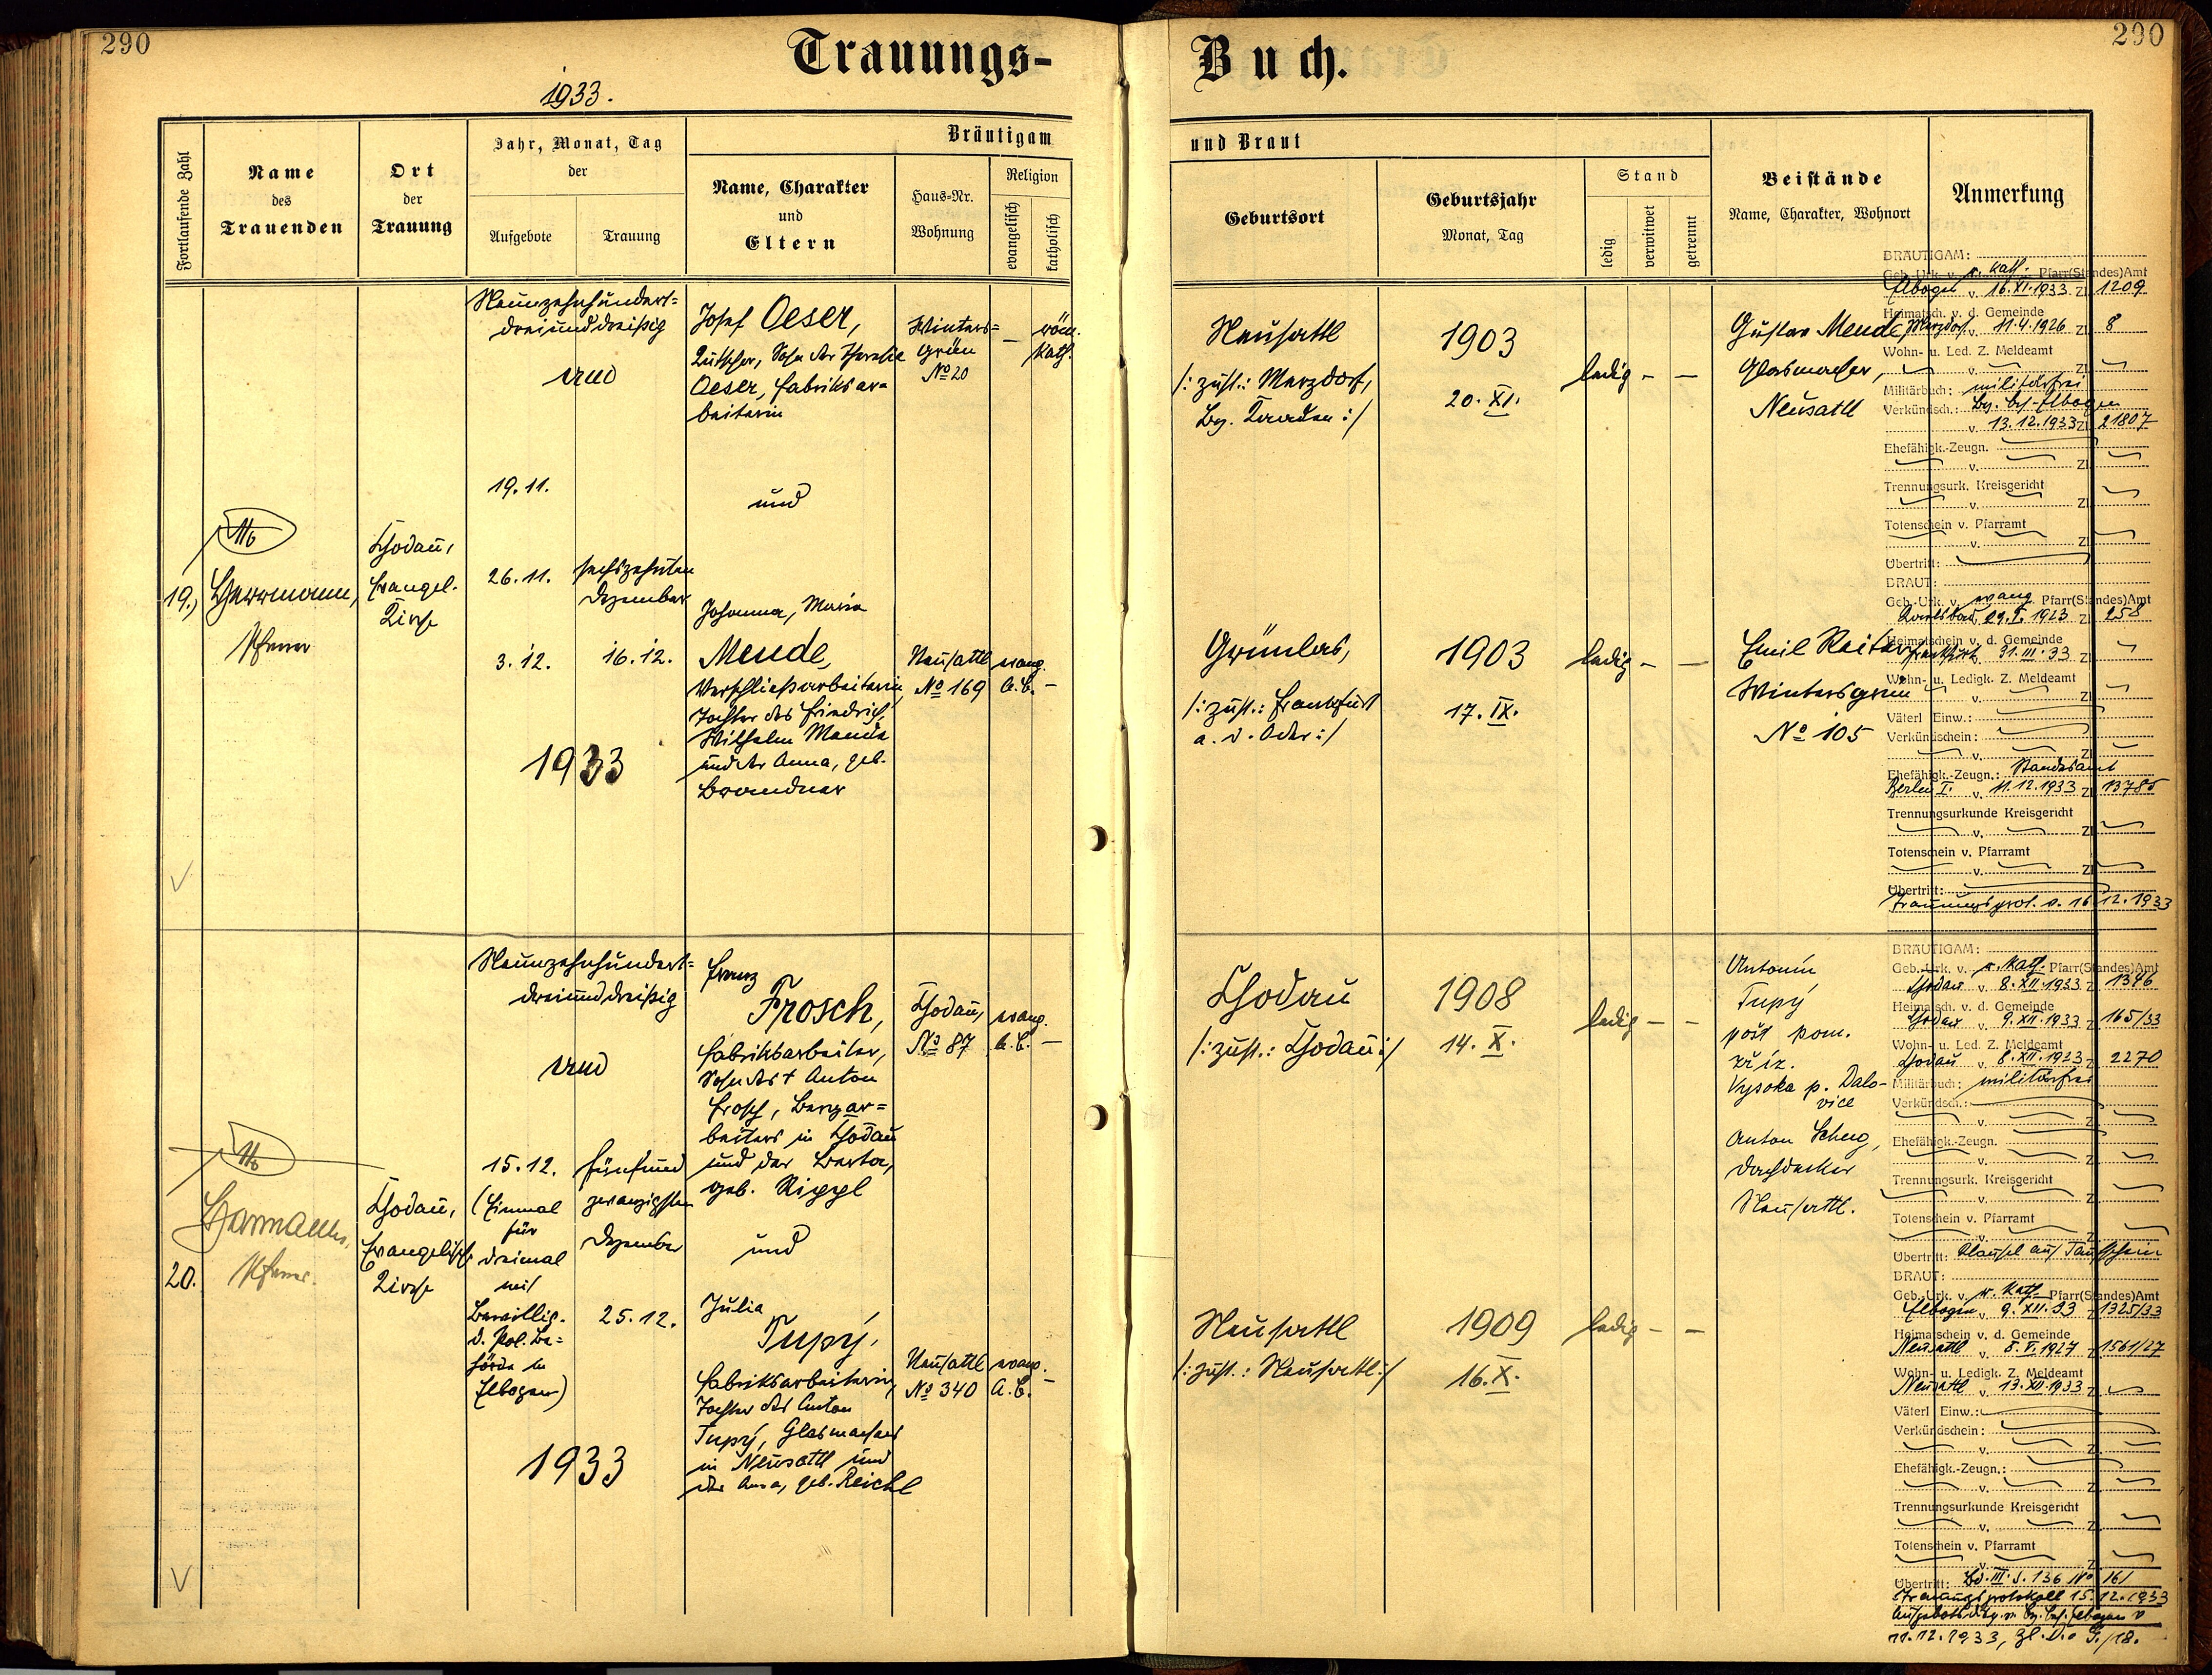 290
Trauungs-
Buch.
290
1933.
Fortlaufende Zahl
Name
des
Trauenden
Ort
der
Trauung
Jahr, Monat, Tag
der
Aufgebote
Trauung
Bräutigam
Name, Charakter
und
Eltern
Haus-Nr.
Wohnung
Religion
evangelisch
katholisch
und Braut
Geburtsort
Geburtsjahr
Monat, Tag
Stand
ledig
verwitwet
getrennt
Beistände
Name, Charakter, Wohnort
Anmerkung
19.)
Pfarrer
Chodau,
Evangel.
Kirche
Neunzehnhundert=
dreiunddreißig
19.11.
26.11.
3.12.
sechszehnten
Dezember
16.12.
1933
Josef Oeser,
Kutscher, Sohn der Theresia
Oeser, Fabriksar=
beiterin
und
Johanna, Maria
Mende,
Verschließarbeiterin,
Tochter des Friedrich,
Wilhelm Mende
und der Anna, geb.
Brandner
Winters=
grün
No 20
—
röm.
kath.
Neusattl
No 169
evang.
A.B. —
Neusattl
/: zust.: Merzdorf,
Bz. Kaaden :/
1903
20. XI.
ledig — —
Grünlas,
/: zust.: Frankfurt
a. d. Oder :/
1903
17. IX.
ledig — —
Gustav Mende,
Glasmacher,
Neusattl
Emil Reiter
Wintersgrün
No 105
BRÄUTIGAM:
Geb.-Urk. v. r. kath. Pfarr(Standes)Amt
Elbogen v. 16.XI.1933 Zl. 1209
Heimatsch. v. d. Gemeinde
Merzdorf v. 11.4.1926 Zl. 8
Wohn- u. Led. Z. Meldeamt
v. Zl.
Militärbuch: militärfrei
Verkündsch.: Bez. Beh. Elbogen
v. 13.12.1933 Zl. 21807
Ehefähigk.-Zeugn.
v. Zl.
Trennungsurk. Kreisgericht
v. Zl.
Totenschein v. Pfarramt
v. Zl.
Übertritt:
BRAUT:
Geb.-Urk. v. evang. Pfarr(Standes)Amt
Karlsbad, 29.X.1923 Zl. 258
Heimatschein v. d. Gemeinde
Frankfurt 31.III.33 Zl.
Wohn- u. Ledigk. Z. Meldeamt
v. Zl.
Väterl. Einw.:
Verkündschein:
v. Zl.
Ehefähigk.-Zeugn.: Standesamt
Berlin I. v. 11.12.1933 Zl. 13785
Trennungsurkunde Kreisgericht
v. Zl.
Totenschein v. Pfarramt
v. Zl.
Übertritt:
Trauungsprot. v. 16.12.1933
20.
Pfarrer.
Chodau,
Evangelische
Kirche
Neunzehnhundert=
dreiunddreißig
15.12.
(Einmal
für
dreimal
mit
Bewillig.
d. Pol. Be=
hörde in
Elbogen)
fünfund
zwanzigsten
Dezember
25.12.
1933
Franz
Frosch,
Fabriksarbeiter,
Sohn des † Anton
Frosch, Bergar=
beiters in Chodau
und der Berta,
geb. Rippl
und
Julia
Tupý,
Fabriksarbeiterin,
Tochter des Anton
Tupý, Glasmachers
in Neusattl und
der Anna, geb. Reichl
Chodau,
No 87
evang.
A.B. —
Neusattl
No 340
evang.
A.B. —
Chodau
/: zust.: Chodau :/
1908
14. X.
ledig — —
Neusattl
/: zust.: Neusattl :/
1909
16. X.
ledig — —
Antonín
Tupý
pošt pom.
zříz.
Vysoka p. Dalo-
vice
Anton Scheg,
Dachdecker
Neusattl.
BRÄUTIGAM:
Geb.-Urk. v. r. kath. Pfarr(Standes)Amt
Chodau v. 8.XII.1933 Zl. 1346
Heimatsch. v. d. Gemeinde
Chodau v. 9.XII.1933 Zl. 165/33
Wohn- u. Led. Z. Meldeamt
Chodau v. 8.XII.1933 Zl. 2270
Militärbuch: militärfrei
Verkündsch.:
v. Zl.
Ehefähigk.-Zeugn.
v. Zl.
Trennungsurk. Kreisgericht
v. Zl.
Totenschein v. Pfarramt
v. Zl.
Übertritt: Klausel auf Taufschein
BRAUT:
Geb.-Urk. v. r. kath. Pfarr(Standes)Amt
Elbogen v. 9.XII.33 Zl. 1325/33
Heimatschein v. d. Gemeinde
Neusattl v. 8.V.1927 Zl. 1561/27
Wohn- u. Ledigk. Z. Meldeamt
Neusattl v. 13.XII.1933 Zl.
Väterl. Einw.:
Verkündschein:
v. Zl.
Ehefähigk.-Zeugn.:
v. Zl.
Trennungsurkunde Kreisgericht
v. Zl.
Totenschein v. Pfarramt
v. Zl.
Übertritt: Bd. III. S. 136 No 161
Trauungsprotokoll 15.12.1933
11.12.1933,